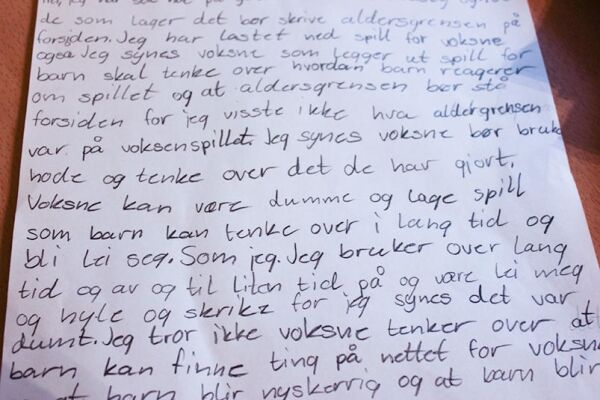 de som lager det bør skrive aldersgrensen på
forsiden. Jeg har lastet ned spill for voksne
også. Jeg synes voksne som legger ut spill for
barn skal tenke over hvordan barn reagerer
om spillet og at aldersgrensen bør stå
forsiden for jeg visste ikke hva aldergrensen
var på voksenspillet. Jeg synes voksne bør bruke
hode og tenke over det de har gjort.
Voksne kan være dumme og lage spill
som barn kan tenke over i lang tid og
bli lei seg. Som jeg. Jeg bruker over lang
tid og av og til liten tid på og være lei meg
og hyle og skrike for jeg synes det var
dumt. Jeg tror ikke voksne tenker over at
barn kan finne ting på nettet for voksne
at barn blir nyskerrig og at barn blir